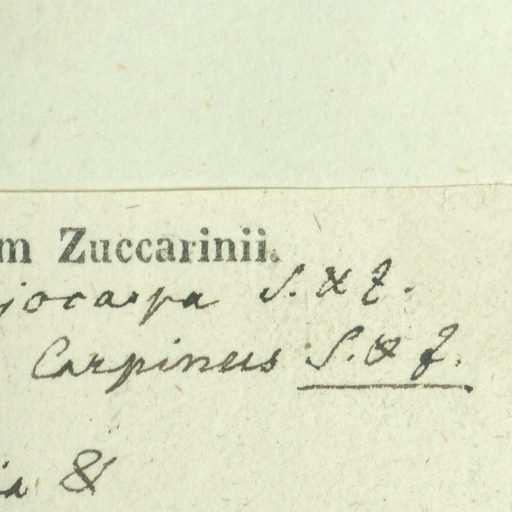 m Zuccarinii.
jocarpa S. & Z.
Carpinus S. & Z.
ia &